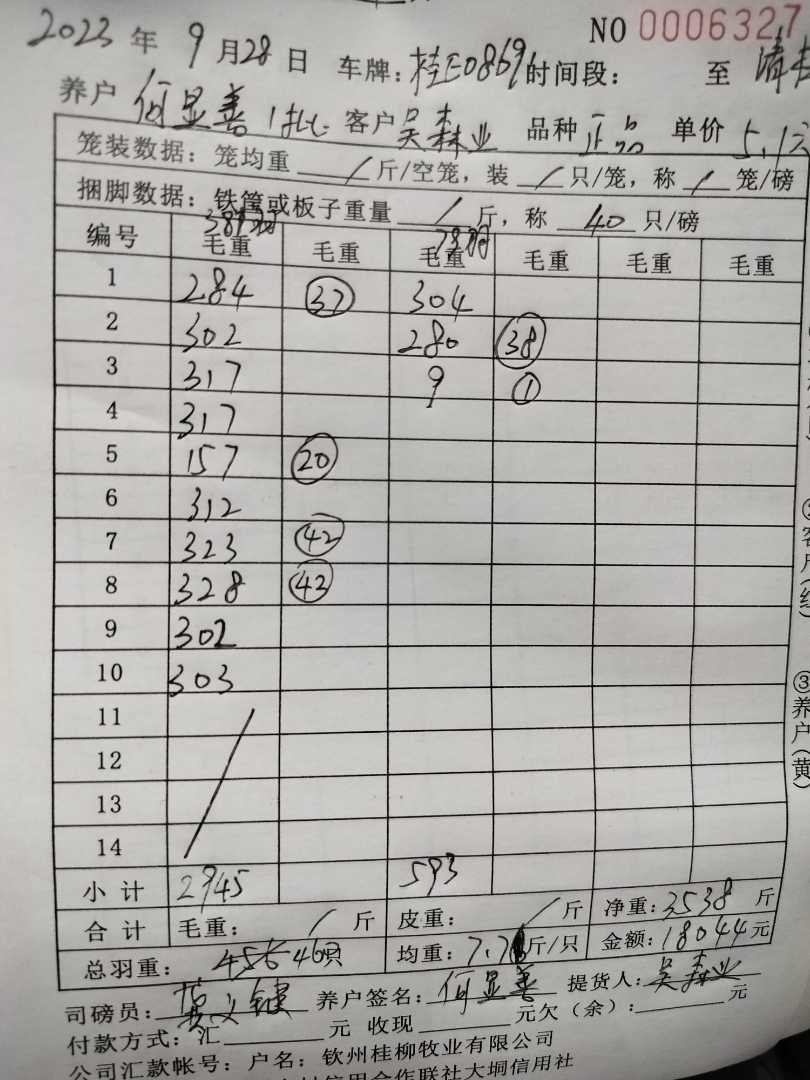 NO 0006327
2023年9月28日 车牌:桂E0869 时间段: 至
养户 何显善 1批 客户 吴森业 品种 正品 单价 5.1元
笼装数据:笼均重 / 斤/空笼,装 / 只/笼,称 / 笼/磅
捆脚数据:铁筐或板子重量 / 斤,称 40 只/磅
编号 毛重 毛重 毛重 毛重 毛重 毛重
1 284 37 304
2 302 280 38
3 317 9 1
4 317
5 157 20
6 312
7 323 42
8 328 42
9 302
10 303
11
12
13
14
小计 2945 593
合计 毛重: / 斤 皮重: / 斤 净重:3538 斤
总羽重: 均重: 斤/只 金额:18044元
司磅员: 养户签名:何显善 提货人:吴森业
付款方式:汇 元 收现 元欠(余): 元
公司汇款帐号:户名:钦州桂柳牧业有限公司
信用合作联社大垌信用社
③养户(黄)